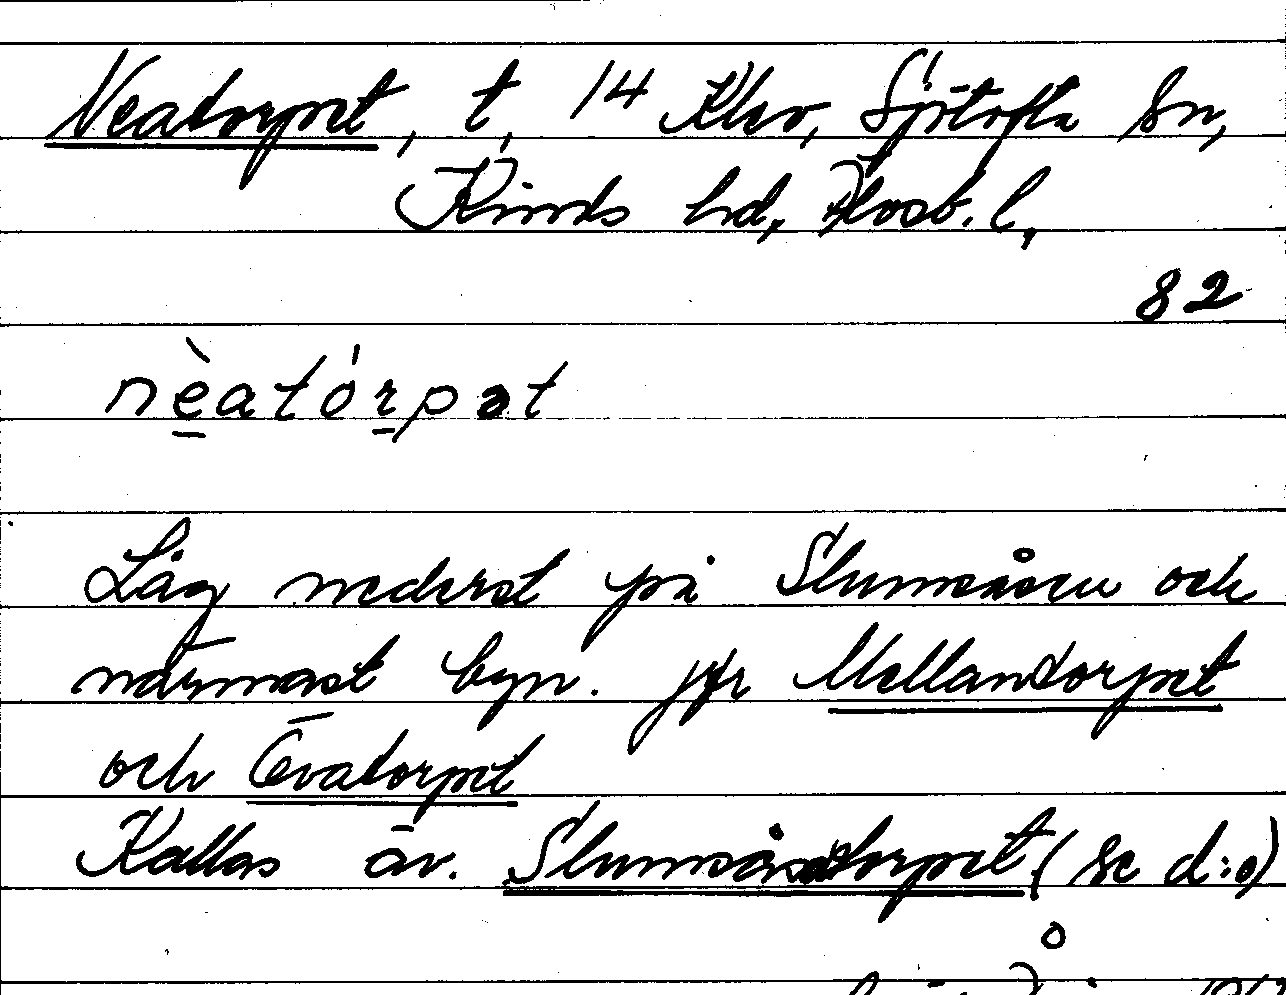 Neatorpet, t, 14 Klev, Sjötofta sn,
Kinds hd, Älvsb. l,
82
nèatórpət
Låg nederst på Slumsåsen och
närmast byn. jfr Mellantorpet
och Övatorpet
Kallas äv. Slumsåstorpet (se d:o)